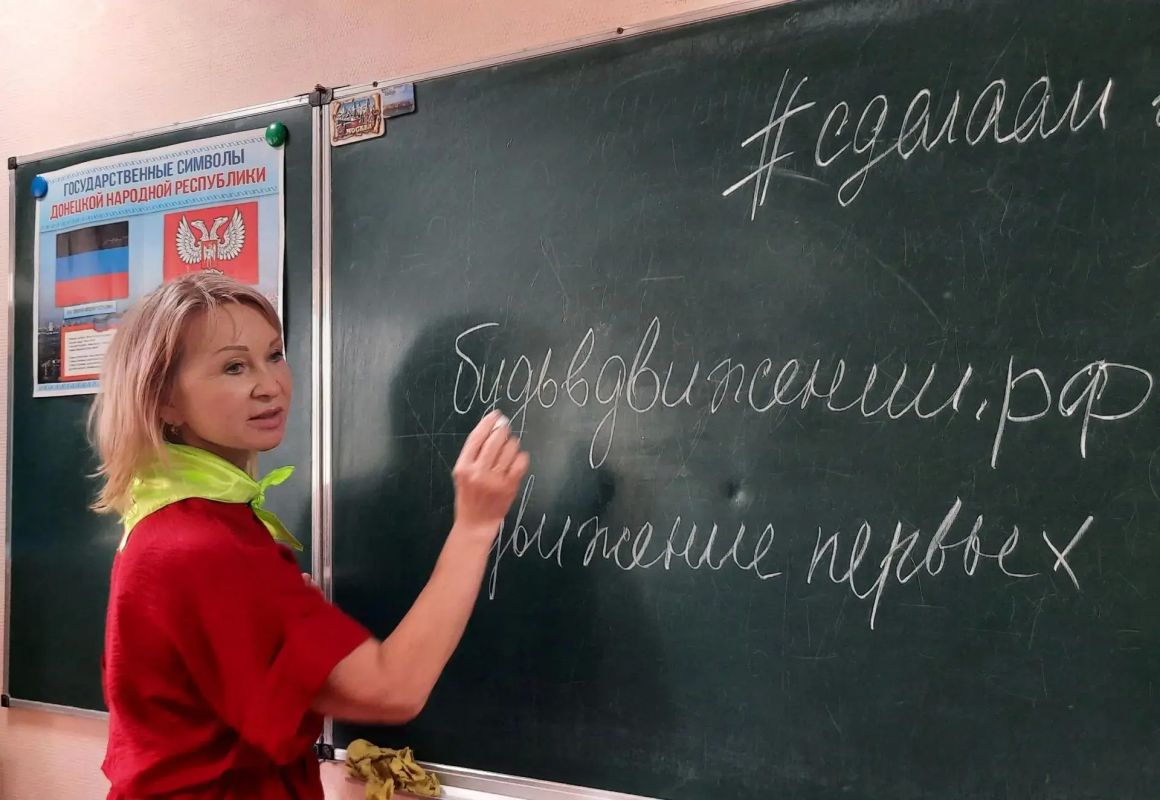 ГОСУДАРСТВЕННЫЕ СИМВОЛЫ
ДОНЕЦКОЙ НАРОДНОЙ РЕСПУБЛИКИ
МОСКВА
#сделаем
будьвдвижении.рф
движение первых